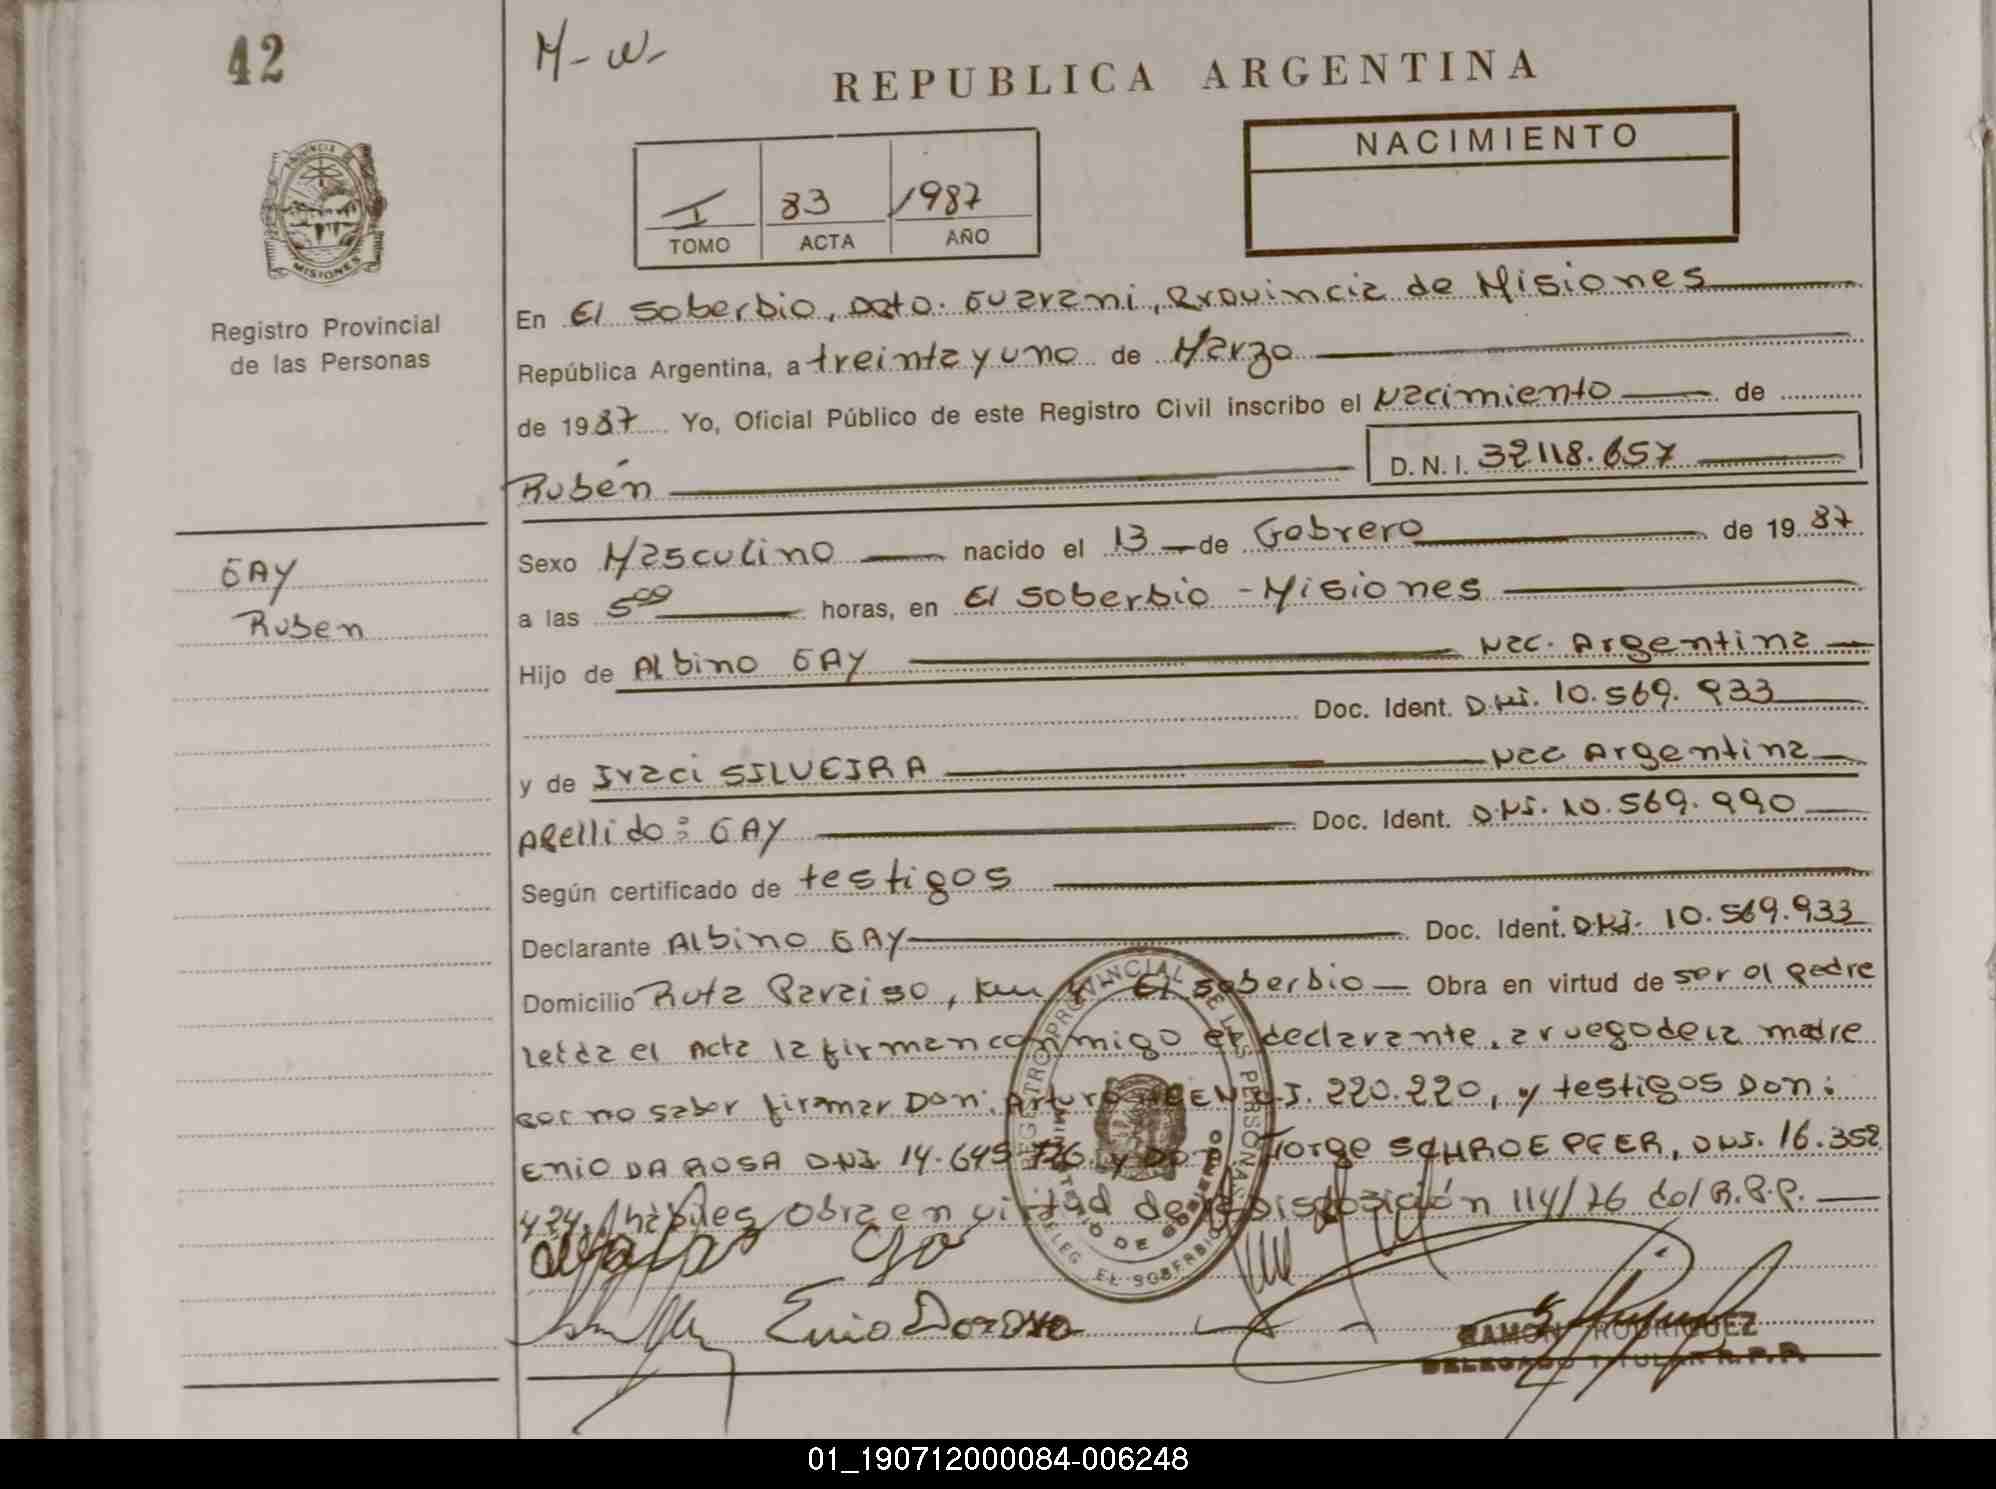 42
M-W-
REPUBLICA ARGENTINA
I 83 1987
TOMO ACTA AÑO
NACIMIENTO
PROVINCIA DE
MISIONES
Registro Provincial
de las Personas
En El Soberbio, Dpto. Guarani, Provincia de Misiones
República Argentina, a treinta y uno de Marzo
de 1987 Yo, Oficial Público de este Registro Civil inscribo el Nacimiento de
Rubén D.N.I. 32118.657
GAY
Ruben
Sexo Masculino nacido el 13 de Febrero de 1987
a las 500 horas, en El Soberbio - Misiones
Hijo de Albino GAY Nac. Argentina
Doc. Ident. D.N.I. 10.569.933
y de Iraci SILVEIRA Nac Argentina
Apellido: GAY Doc. Ident. D.N.I. 10.569.990
Según certificado de testigos
Declarante Albino GAY Doc. Ident. D.N.I. 10.569.933
Domicilio Ruta Paraiso, km 4 El Soberbio Obra en virtud de ser el padre
Leida el Acta la firman conmigo el declarante, a ruego de la madre
por no saber firmar Don: Arturo 220.220, y testigos Don:
Enio DA ROSA DNI. 14.645 y Don Jorge SCHROEPFER, DNI. 16.352
424, habiles obra en virtud de la Disposición 114/76 del R.P.P.
REGISTRO PROVINCIAL DE LAS PERSONAS
MINISTERIO DE GOBIERNO
DELEG EL SOBERBIO
Enio Darosa
RAMON RODRIGUEZ
DELEGADO TITULAR R.P.P.
01_190712000084-006248